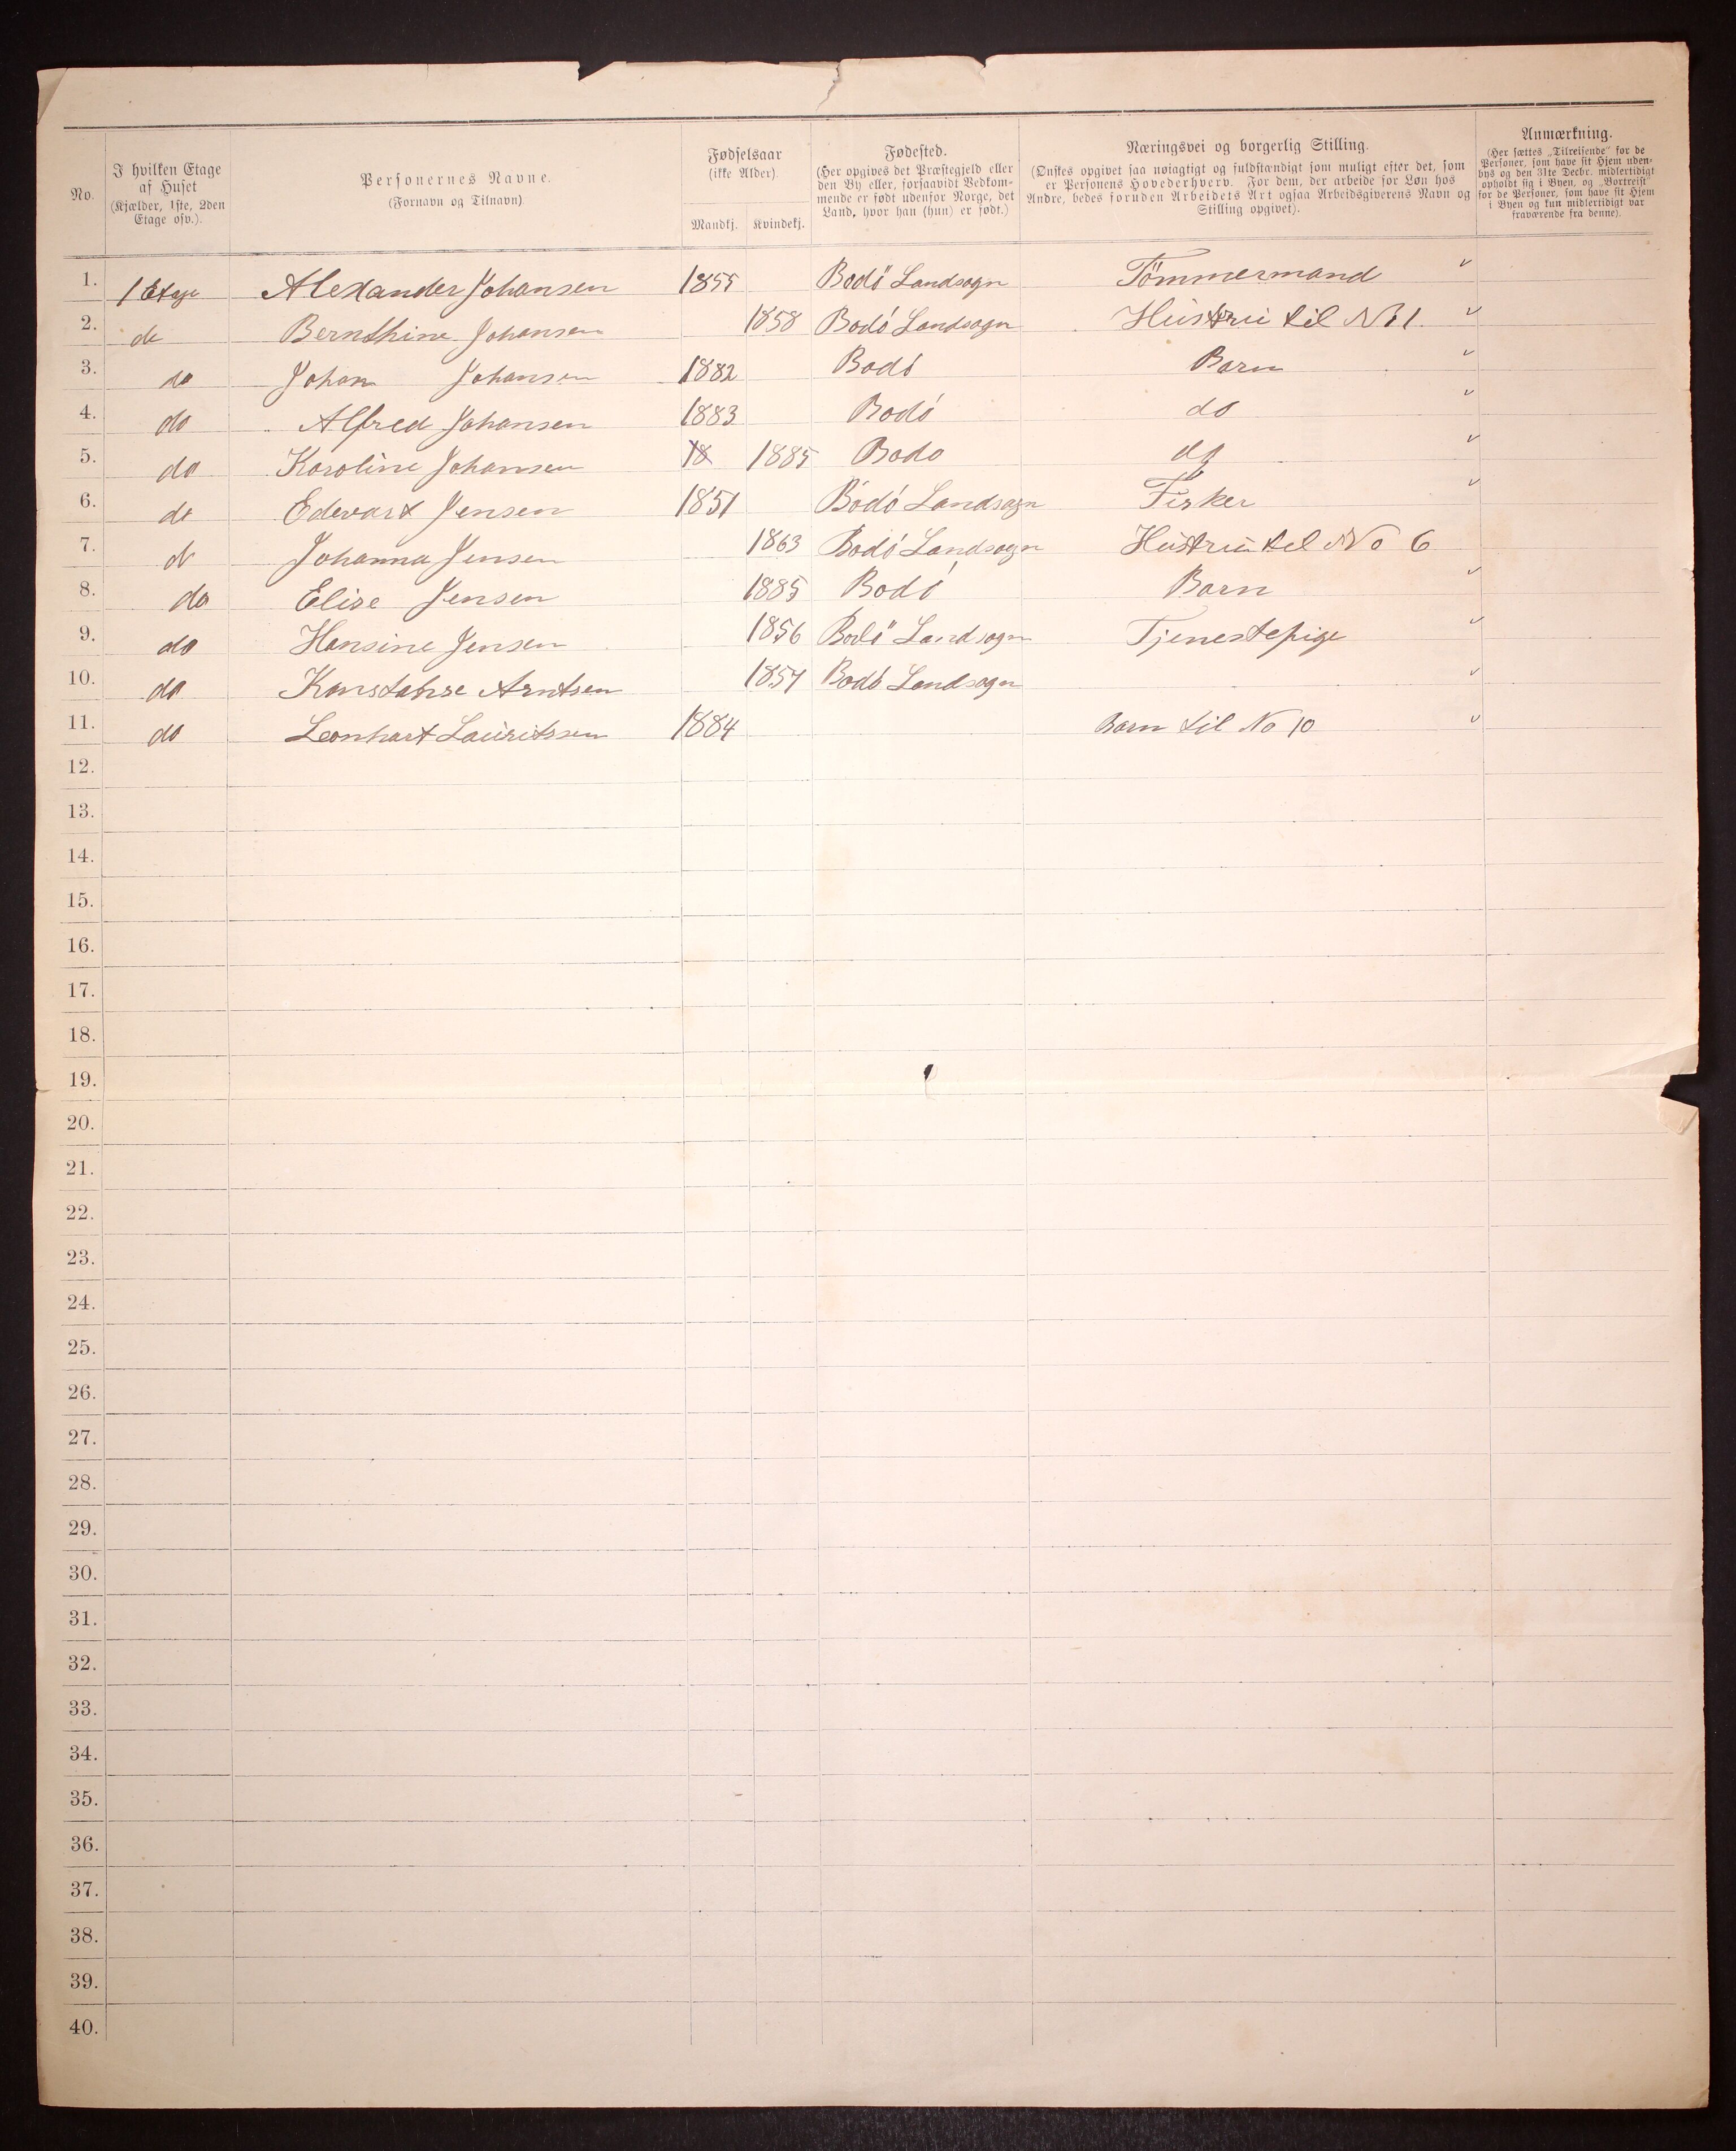 No.
I hvilken Etage
af Huset
(Kjælder, 1ste, 2den
Etage osv.).
Personernes Navne.
(Fornavn og Tilnavn)
Fødselsaar
(ikke Alder)
Mandkj. Kvindekj.
Fødested.
(Her opgives det Præstegjeld eller
den By eller, forsaavidt Vedkom-
mende er født udenfor Norge, det
Land, hvor han (hun) er født.)
Næringsvei og borgerlig Stilling.
(Ønskes opgivet saa nøiagtigt og fuldstændigt som muligt efter det, som
er Personens Hovederhverv. For dem, der arbeide for Løn hos
Andre, bedes foruden Arbeidets Art ogsaa Arbeidsgiverens Navn og
Stilling opgivet).
Anmærkning.
(Her sættes „Tilreisende" for de
Personer, som have sit Hjem uden-
bys og den 31te Decbr. midlertidigt
opholdt sig i Byen, og „Bortreist"
for de Personer, som have sit Hjem
i Byen og kun midlertidigt var
fraværende fra denne).
1. 1 Etage Alexander Johansen 1855 Bodö Landsogn Tömmermand
2. do Bernthine Johansen 1858 Bodó Landsogn Hustru til No 1.
3. do Johan Johansen 1882 Bodó Barn
4. do Alfred Johansen 1883 Bodó do
5. do Karoline Johansen 18 1885 Bodo do
6. do Edevart Jensen 1851 Bodó Landsogn Fisker
7. do Johanna Jensen 1863 Bodó Landsogn Hustru til No 6
8. do Elise Jensen 1885 Bodó Barn
9. do Hansine Jensen 1856 Bodö Landsogn Tjenestepige
10. do Konstanse Arntsen 1857 Bodó Landsogn
11. do Leonhart Lauritssen 1884 Barn til No 10
12.
13.
14.
15.
16.
17.
18.
19.
20.
21.
22.
23.
24.
25.
26.
27.
28.
29.
30.
31.
32.
33.
34.
35.
36.
37.
38.
39.
40.